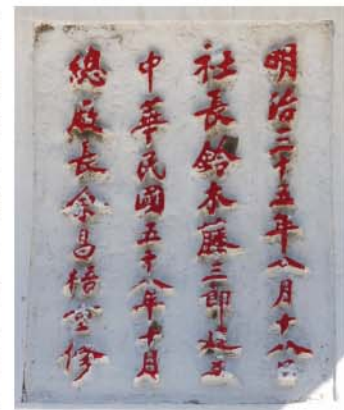 明治三十五年八月十八日
社長鈴木藤三郎建立
中華民國五十八年十月
總廠長余昌梧重修